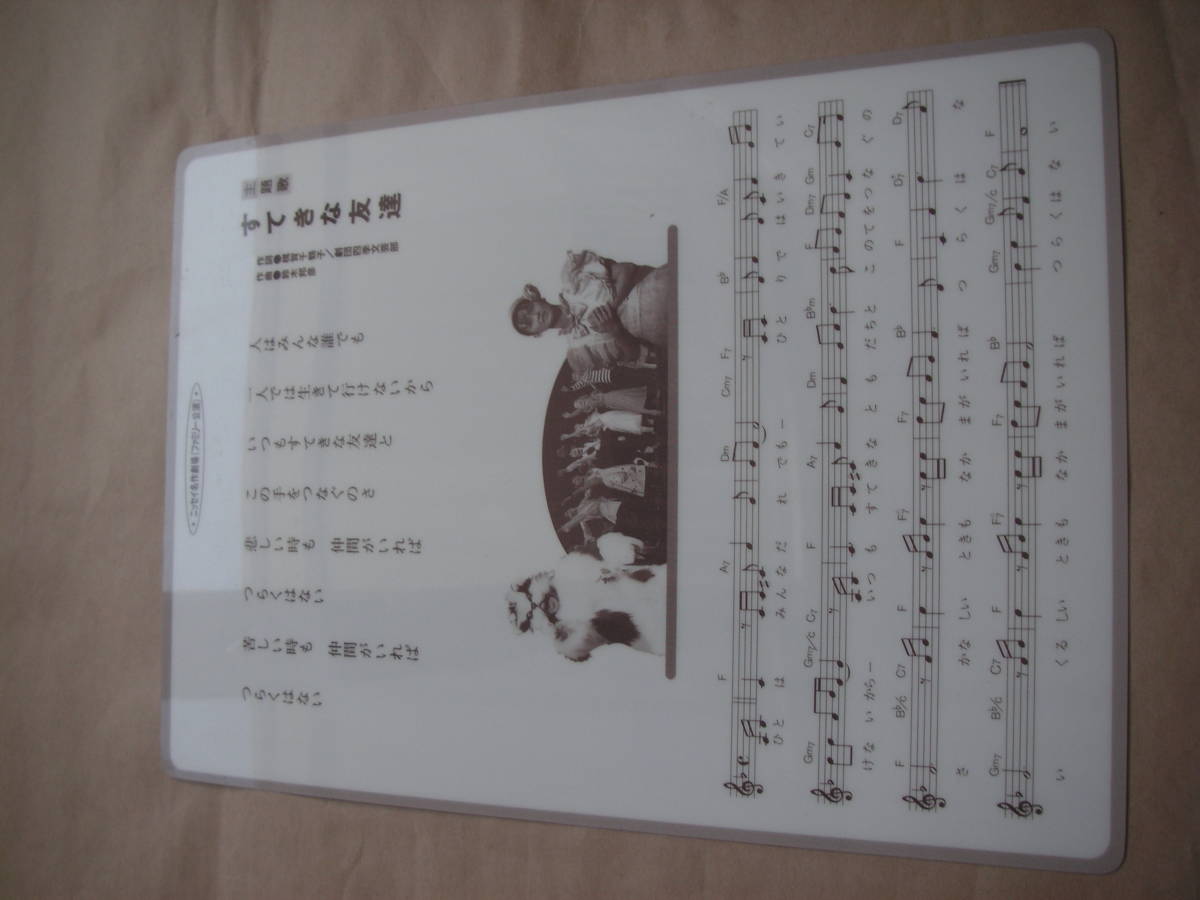 ● ニッセイ名作劇場[ファミリー公演] ●
主題歌
すてきな友達
作詞●梶賀千鶴子／劇団四季文芸部
作曲●鈴木邦彦
人はみんな誰でも
一人では生きて行けないから
いつもすてきな友達と
この手をつなぐのさ
悲しい時も 仲間がいれば
つらくはない
苦しい時も 仲間がいれば
つらくはない
F A7 Dm Cm7 F7 B♭ F/A
ひと は みんなだ れ でもー ひと りで はいきて い
Gm7 Gm7/C C7 F A7 Dm B♭m F Dm7 Gm C7
けな いからー いつ も すてきな と も だちと このてをつな ぐ の
F B♭/C C7 F F7 F7 B♭ F D7 D7
さ かな しい ときも なか まがいれば つ らくは な
Gm7 B♭/C C7 F F7 F7 B♭ Gm7 Gm7/C C7 F
い くる しい ときも なか まがいれば つ らくは な い